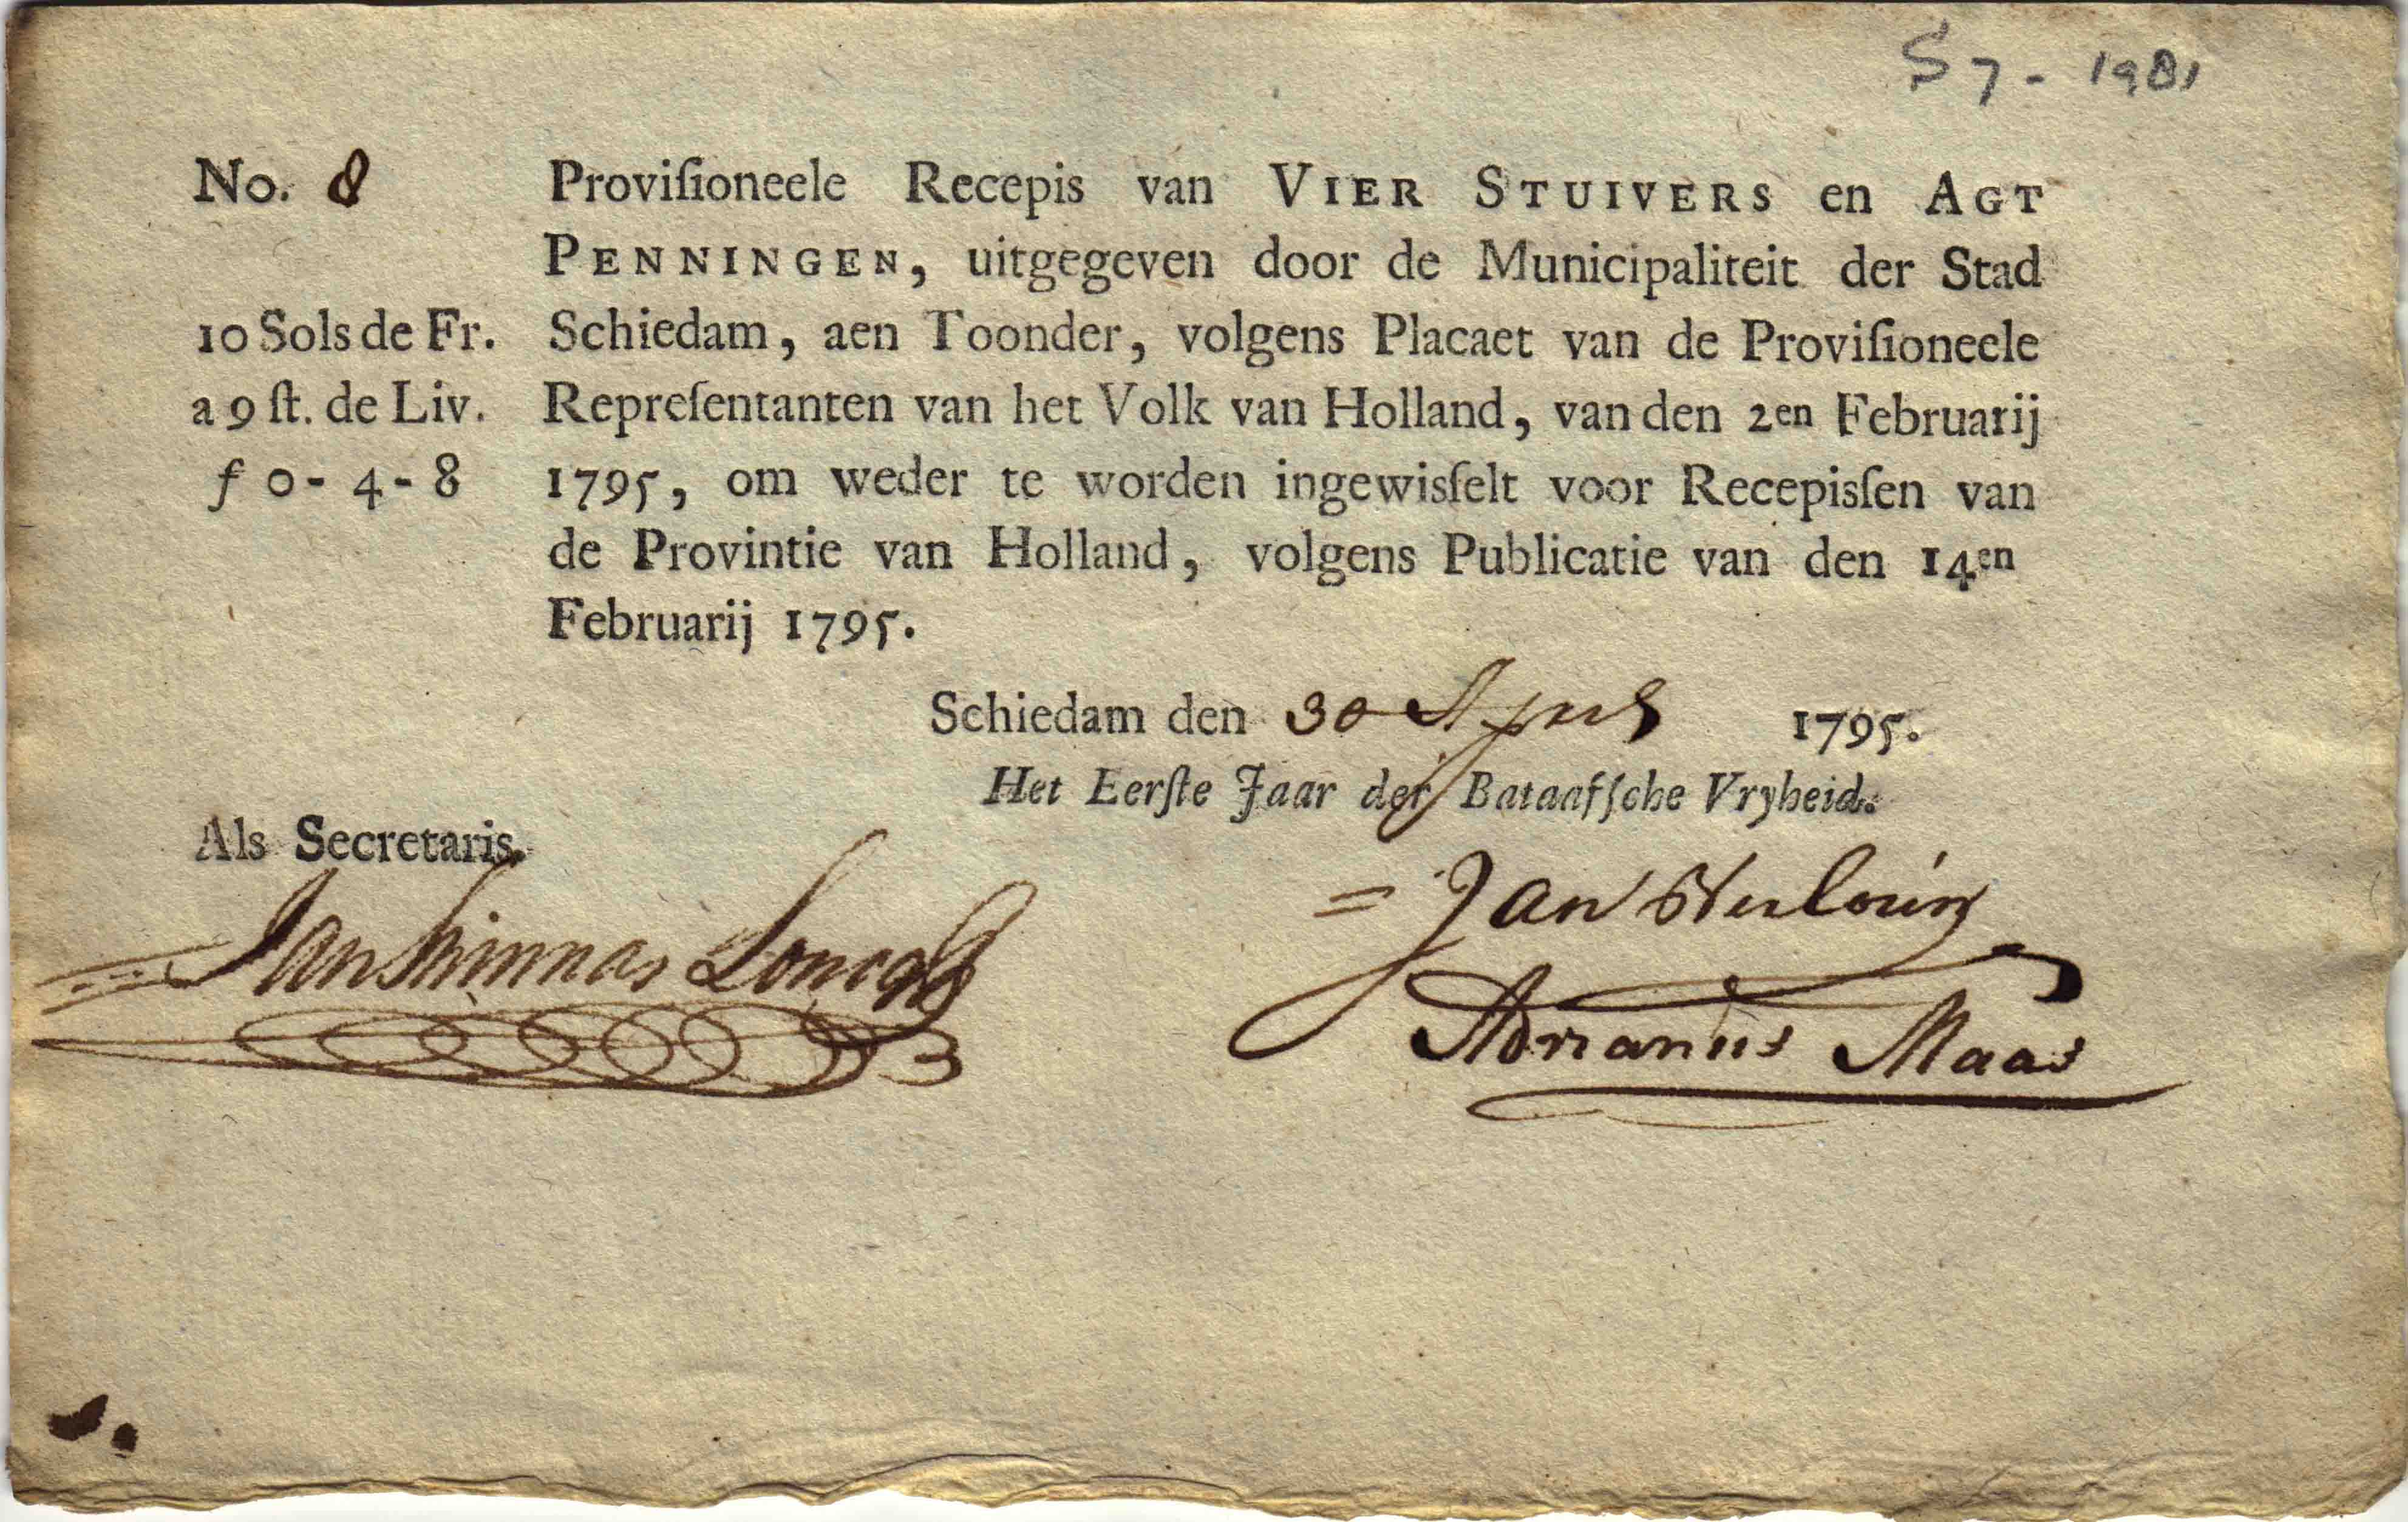 S7 - 1981
No. 8
Proviſioneele Recepis van VIER STUIVERS en AGT
PENNINGEN, uitgegeven door de Municipaliteit der Stad
10 Sols de Fr. Schiedam, aen Toonder, volgens Placaet van de Proviſioneele
a 9 ſt. de Liv. Repreſentanten van het Volk van Holland, van den 2en Februarij
f 0 - 4 - 8 1795, om weder te worden ingewisſelt voor Recepisſen van
de Provintie van Holland, volgens Publicatie van den 14en
Februarij 1795.
Schiedam den 30 April 1795.
Het Eerſte Jaar der Bataafſche Vryheid.
Als Secretaris.
Jan
Jan
Adrianus Maas